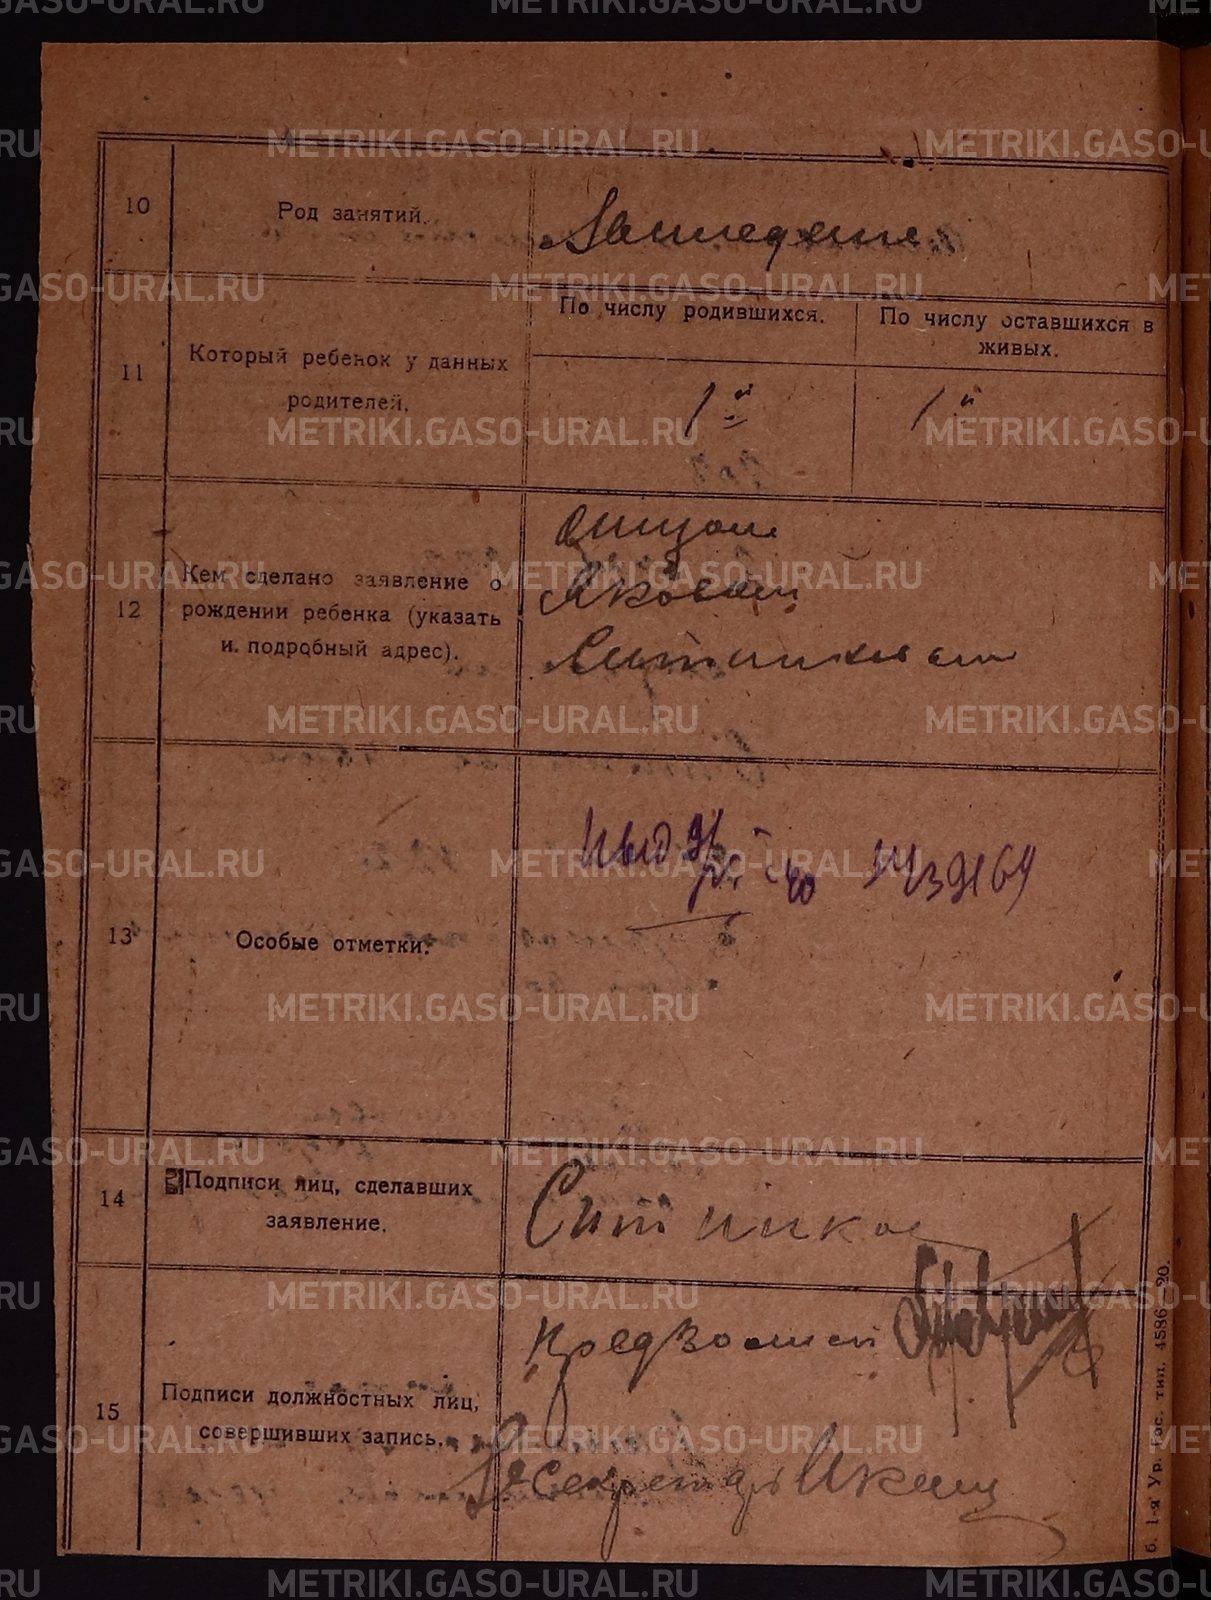 10
Род занятий.
11
Который ребенок у данных
родителей.
По числу родившихся.
По числу оставшихся в
живых.
1й
1й
12
Кем сделано заявление о
рождении ребенка (указать
и подробный адрес).
отцом
Яковом
Ситниковым
13
Особые отметки.
14
Подписи лиц, сделавших
заявление.
Ситников
15
Подписи должностных лиц,
совершивших запись.
Пред
Секретарь
б. 1-я Ур. Гос. тип. 4586—20.
METRIKI.GASO-URAL.RU